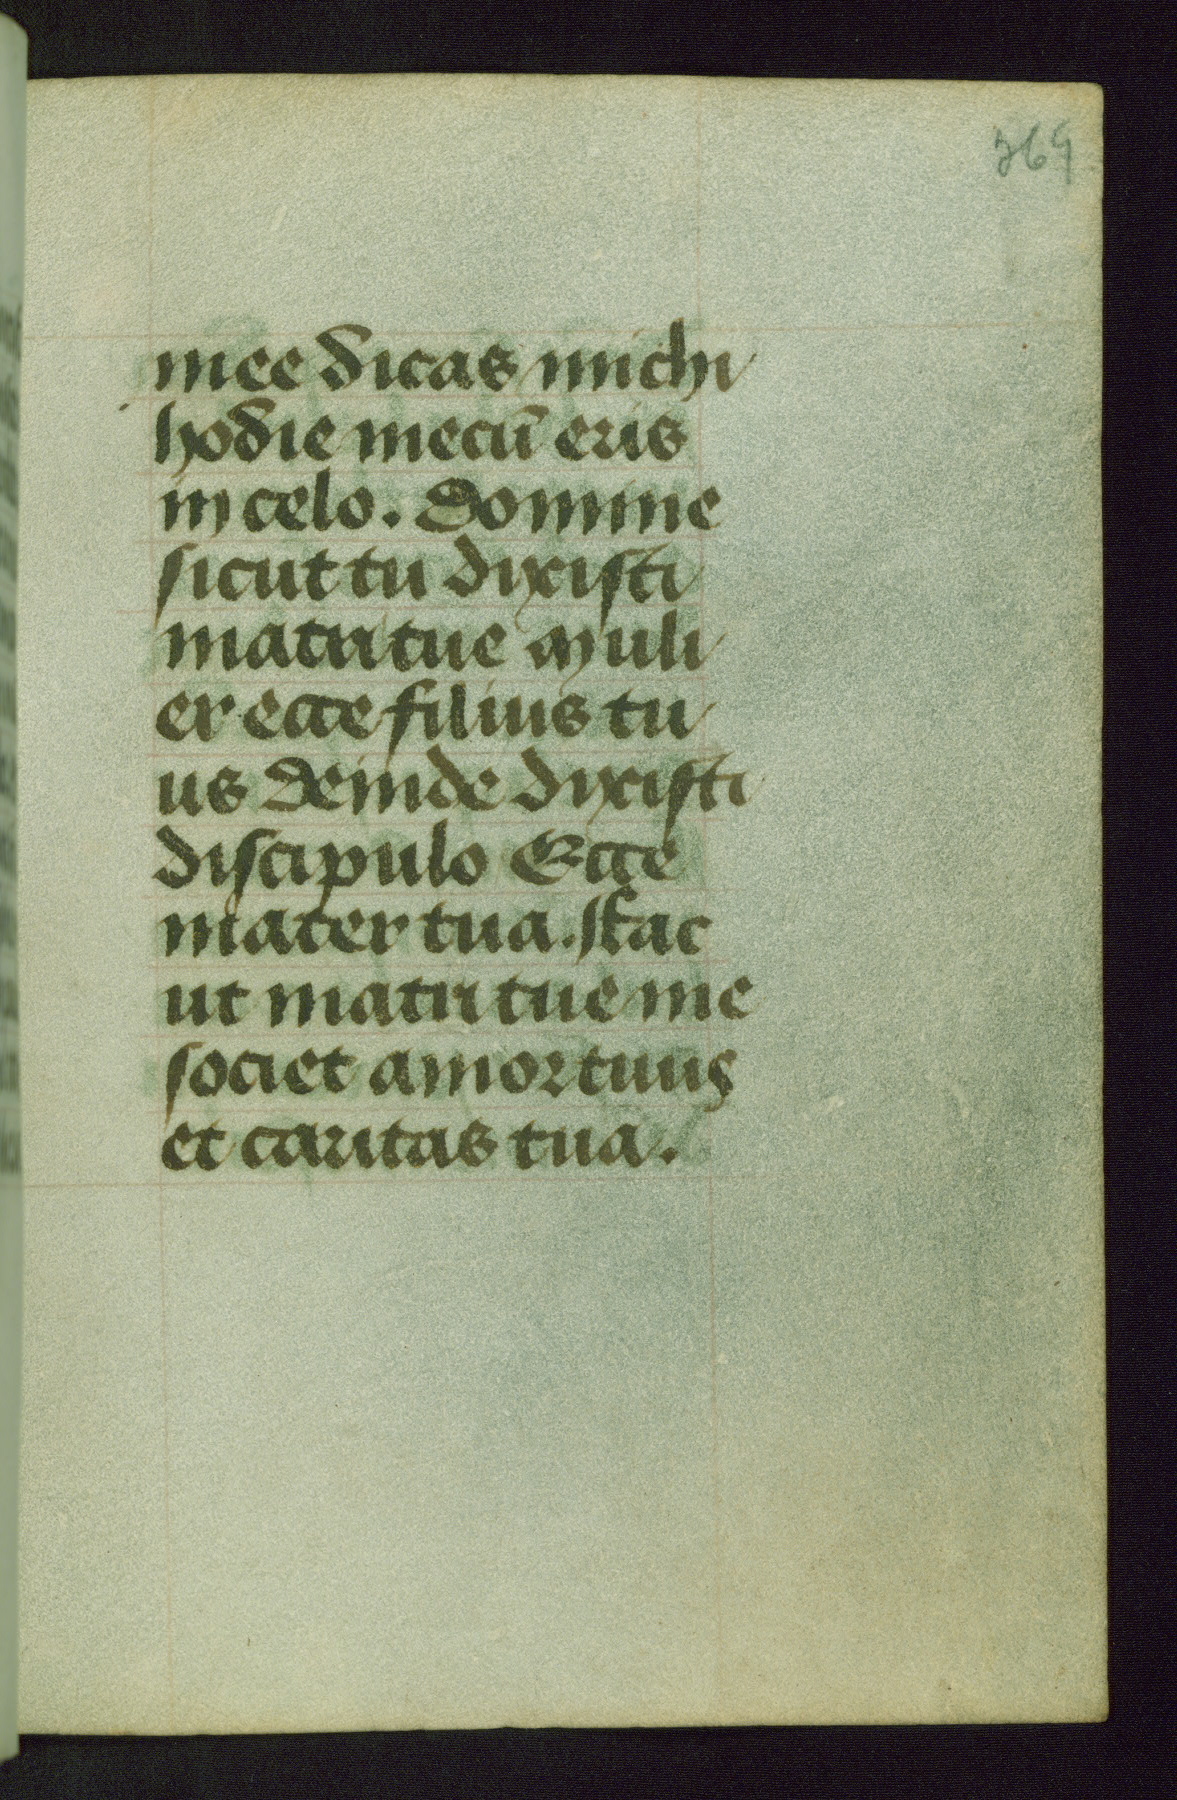 369
mee dicas michi
hodie mecū eris
in celo. Domine
sicut tu dixisti
matri tue Muli
er ecce filius tu
us Deinde dixisti
discipulo Ecce
mater tua. Fac
ut matri tue me
societ amor tuus
et caritas tua.